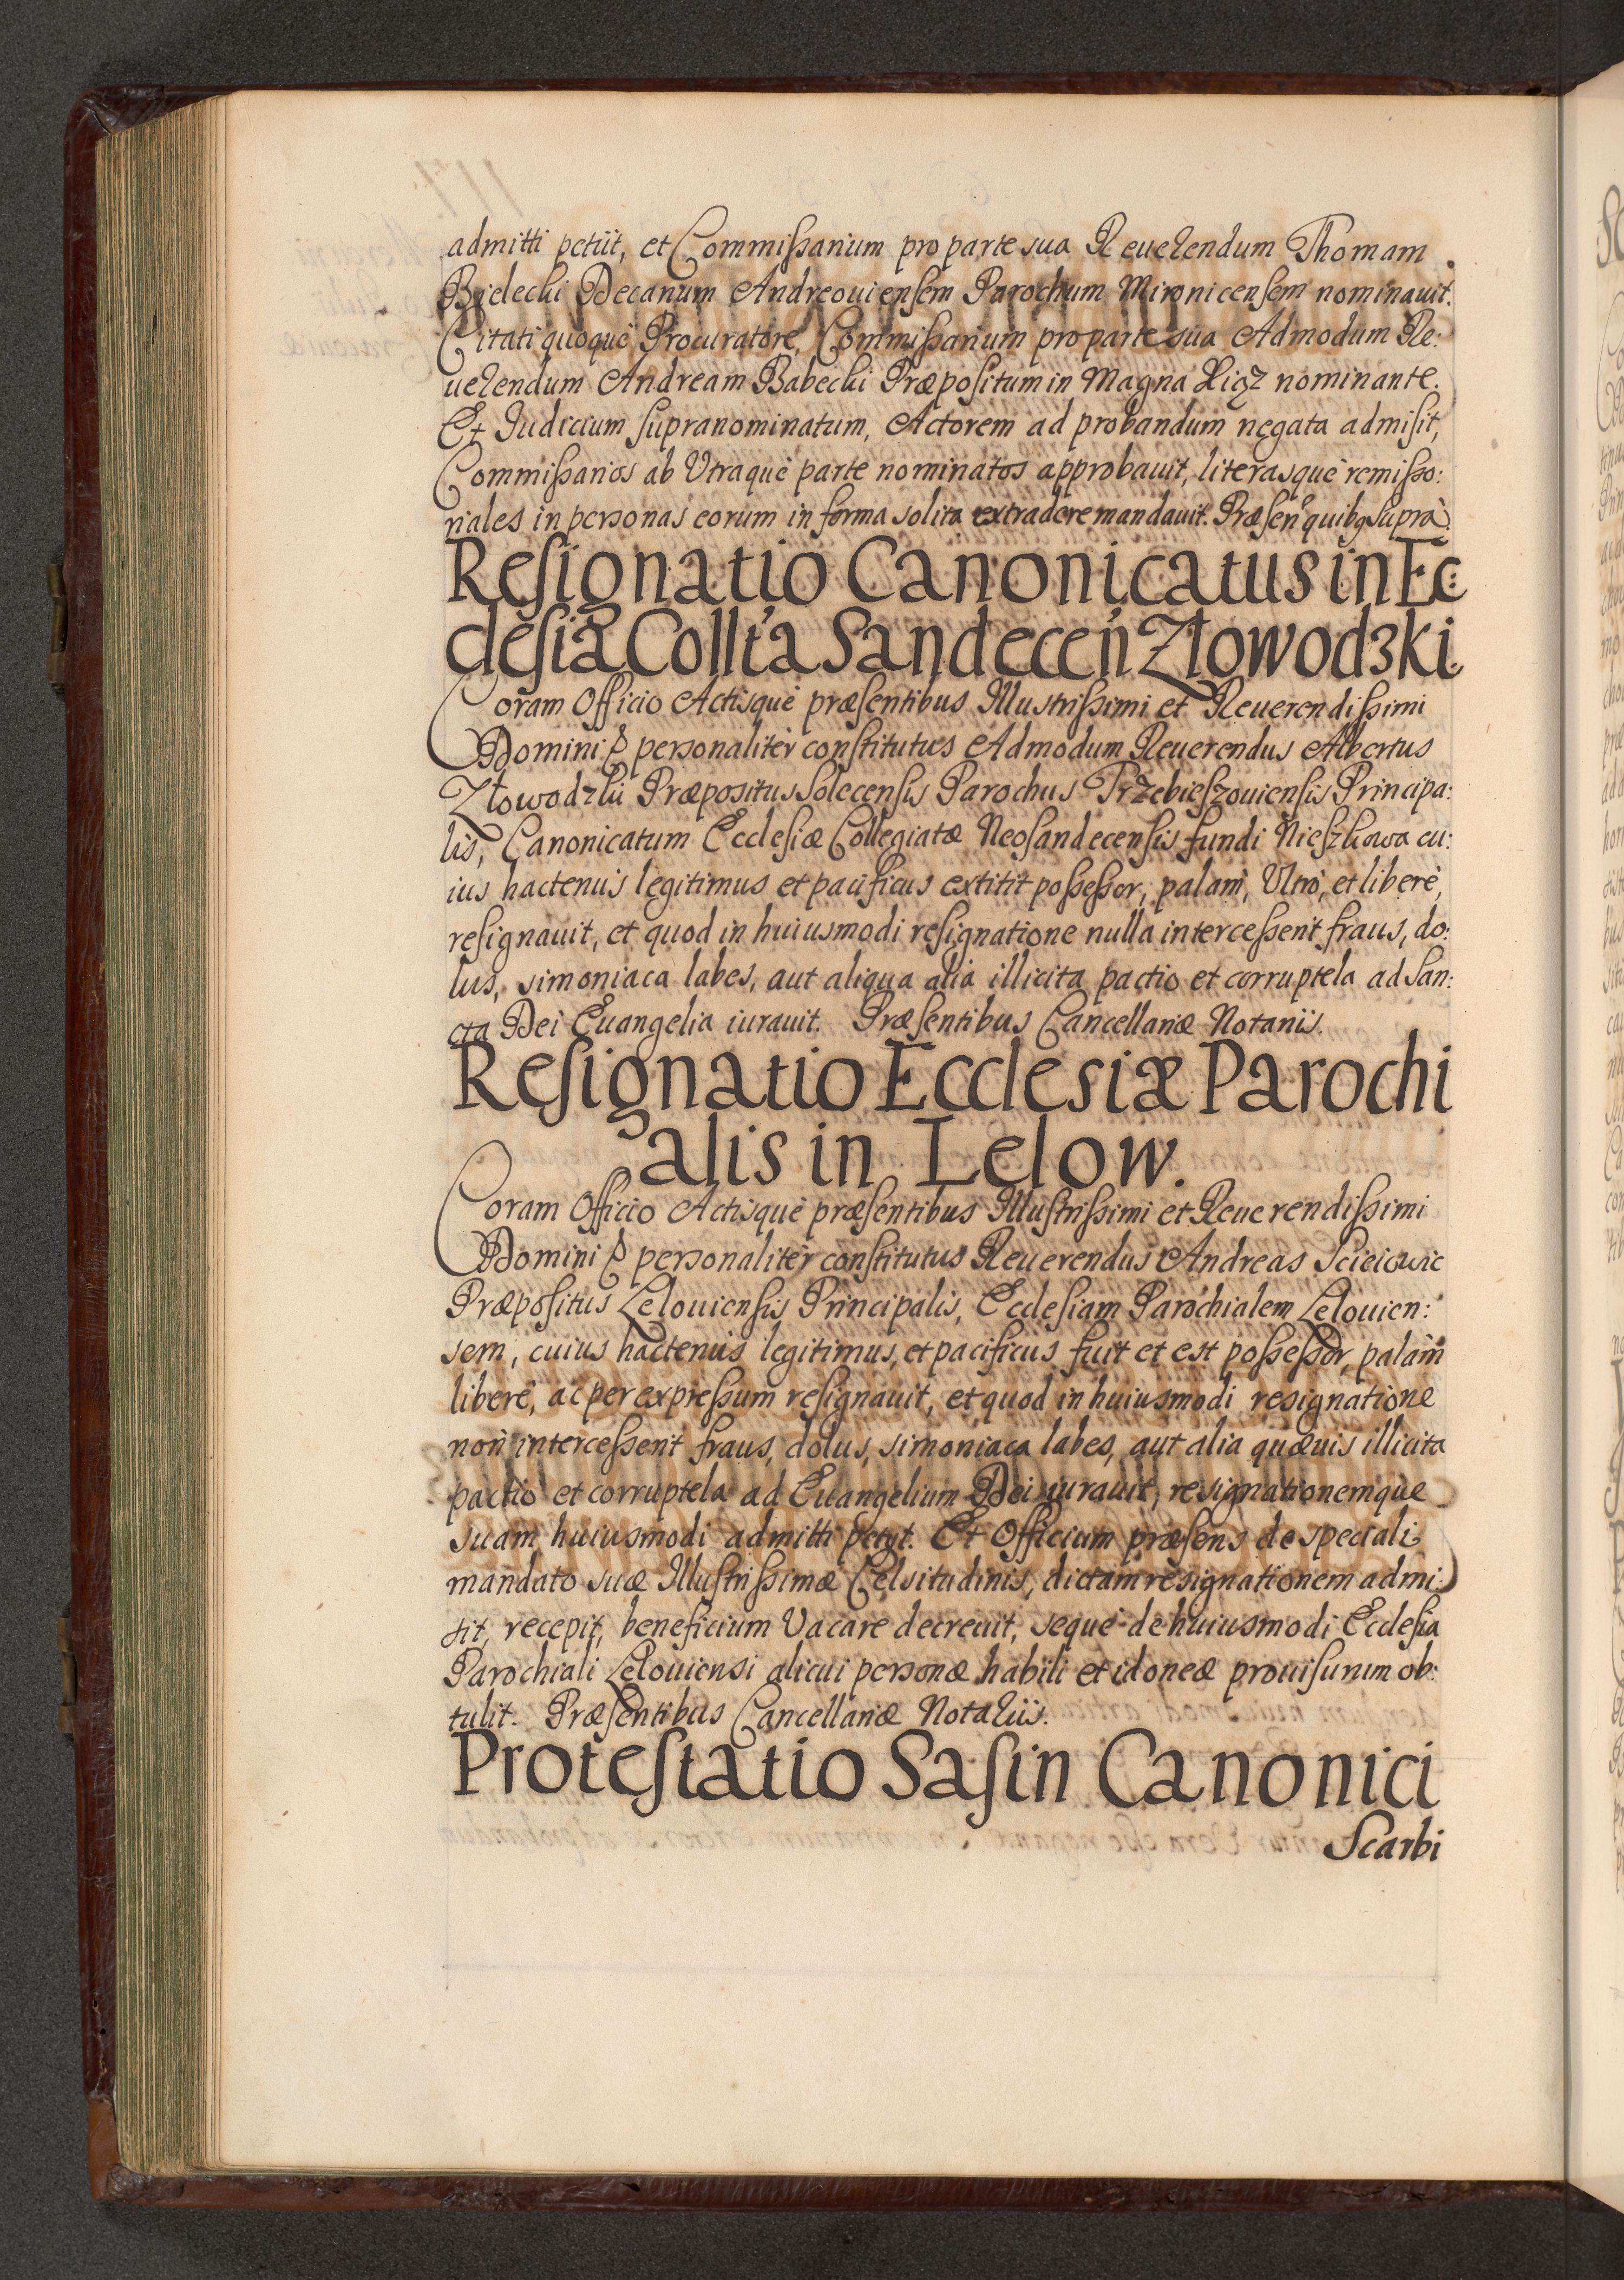 admitti petiit, et Commißarium pro parte sua Reuerendum Thomam
Bielecki Decanum Andreouiensem Parochum Mironicensem nominauit.
Citati quoque Procuratore, Commißarium pro parte sua Admodum Re:
uerendum Andream Babecki Præpositum in Magna Xiąz nominante.
Et Iudicium supranominatum, Actorem ad probandum negata admisit,
Commißarios ab Vtraque parte nominatos approbauit, literasque remißo:
riales in personas eorum in forma solita extradere mandauit. Præsen. quibq supra.
Resignatio Canonicatus in Ec:
clesia Collta Sandecen Złowodzki
Coram Officio Actisque præsentibus Illustrißimi et Reuerendißimi
Domini & personaliter constitutus Admodum Reuerendus Albertus
Złowodzki Præpositus Solecensis Parochus Przebieszouiensis Principa:
lis, Canonicatum Ecclesiæ Collegiatæ Neosandecensis fundi Nieszkowa cu:
ius hactenus legitimus et pacificus extitit poßeßor, palam, Vltro, et libere,
resignauit, et quod in huiusmodi resignatione nulla interceßerit fraus, do:
lus, simoniaca labes, aut aliqua alia illicita pactio et corruptela ad San:
cta Dei Euangelia iurauit. Præsentibus Cancellariæ Notariis.
Resignatio Ecclesiæ Parochi
alis in Lelow.
Coram Officio Actisque præsentibus Illustrißimi et Reuerendißimi
Domini & personaliter constitutus Reuerendus Andreas
Præpositus Lelouiensis Principalis, Ecclesiam Parochialem Lelouien:
sem, cuius hactenus legitimus, et pacificus fuit et est poßeßor, palam
libere, ac per expreßum resignauit, et quod in huiusmodi resignatione
non interceßerit fraus, dolus, simoniaca labes, aut alia quæuis illicita
pactio et corruptela ad Euangelium Dei iurauit, resignationemque
suam huiusmodi admitti petyt. Et Officium præsens de speciali
mandato suæ Illustrißimæ Celsitudinis, dictam resignationem admi:
sit, recepit, beneficium Vacare decreuit, seque de huiusmodi Ecclesia
Parochiali Lelouiensi alicui personæ habili et idoneæ prouisurum ob:
tulit. Præsentibus Cancellariæ Notariis.
Protestatio Sasin Canonici
Scarbi